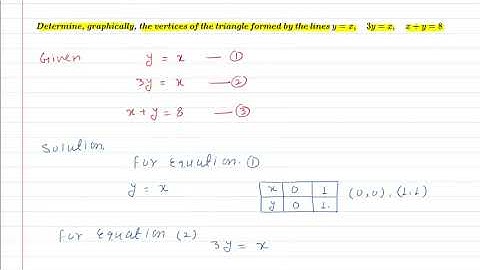 Determine, graphically, the vertices of the triangle formed by the lines y = x, 3y = x, x + y = 8
Given y = x — ①
3y = x — ②
x + y = 8 — ③
Solution.
For Equation. ①
y = x
x 0 1 (0,0), (1.1)
y 0 1.
For Equation (2)
3y = x